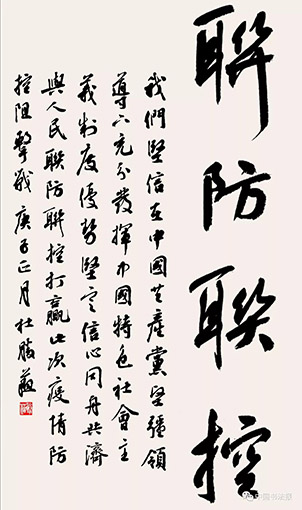 聯防聯控
我們堅信在中國共產黨堅彊領
導下充分發揮中國特色社會主
義制度優勢堅定信心同舟共濟
與人民聯防聯控打贏此次疫情防
控阻擊戰 庚子正月 杜勝